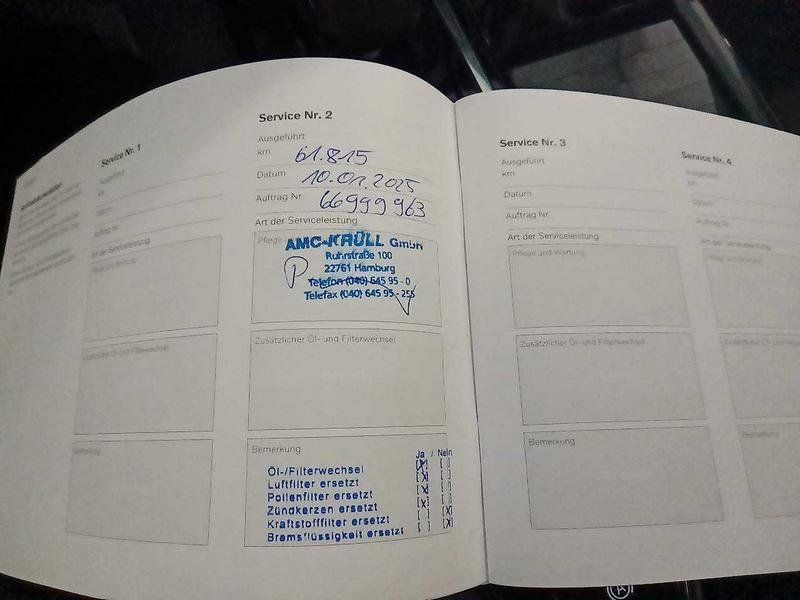 Service Nr. 1
Ausgeführt
km
Datum
Auftrag Nr.
Art der Serviceleistung
Pflege und Wartung
Zusätzlicher Öl- und Filterwechsel
Bemerkung
Service Nr. 2
Ausgeführt
km 61.815
Datum 10.01.2025
Auftrag Nr. 66999963
Art der Serviceleistung
Pflege
AMC-KRÜLL GmbH
Ruhrstraße 100
22761 Hamburg
Telefon (040) 645 95 - 0
Telefax (040) 645 95 - 255
Zusätzlicher Öl- und Filterwechsel
Bemerkung
Ja / Nein
Öl-/Filterwechsel [X] [ ]
Luftfilter ersetzt [X] [ ]
Pollenfilter ersetzt [X] [ ]
Zündkerzen ersetzt [X] [ ]
Kraftstofffilter ersetzt [ ] [X]
Bremsflüssigkeit ersetzt [ ] [X]
Service Nr. 3
Ausgeführt
km
Datum
Auftrag Nr.
Art der Serviceleistung
Pflege und Wartung
Zusätzlicher Öl- und Filterwechsel
Bemerkung
Service Nr. 4
Ausgeführt
km
Datum
Auftrag Nr.
Art der Serviceleistung
Pflege und Wartung
Zusätzlicher Öl- und
Bemerkung